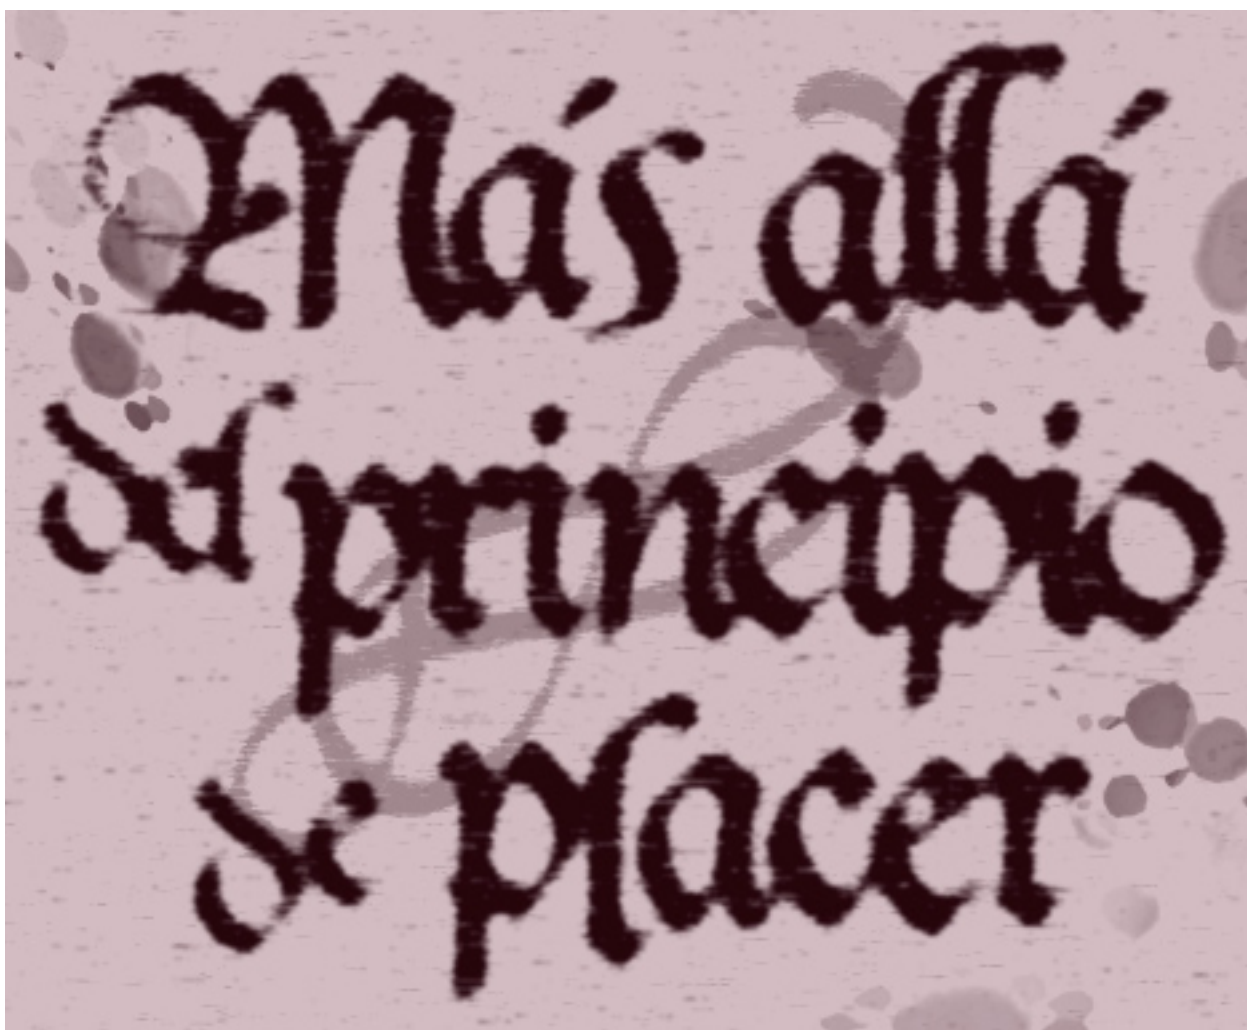 Más allá
del principio
de placer